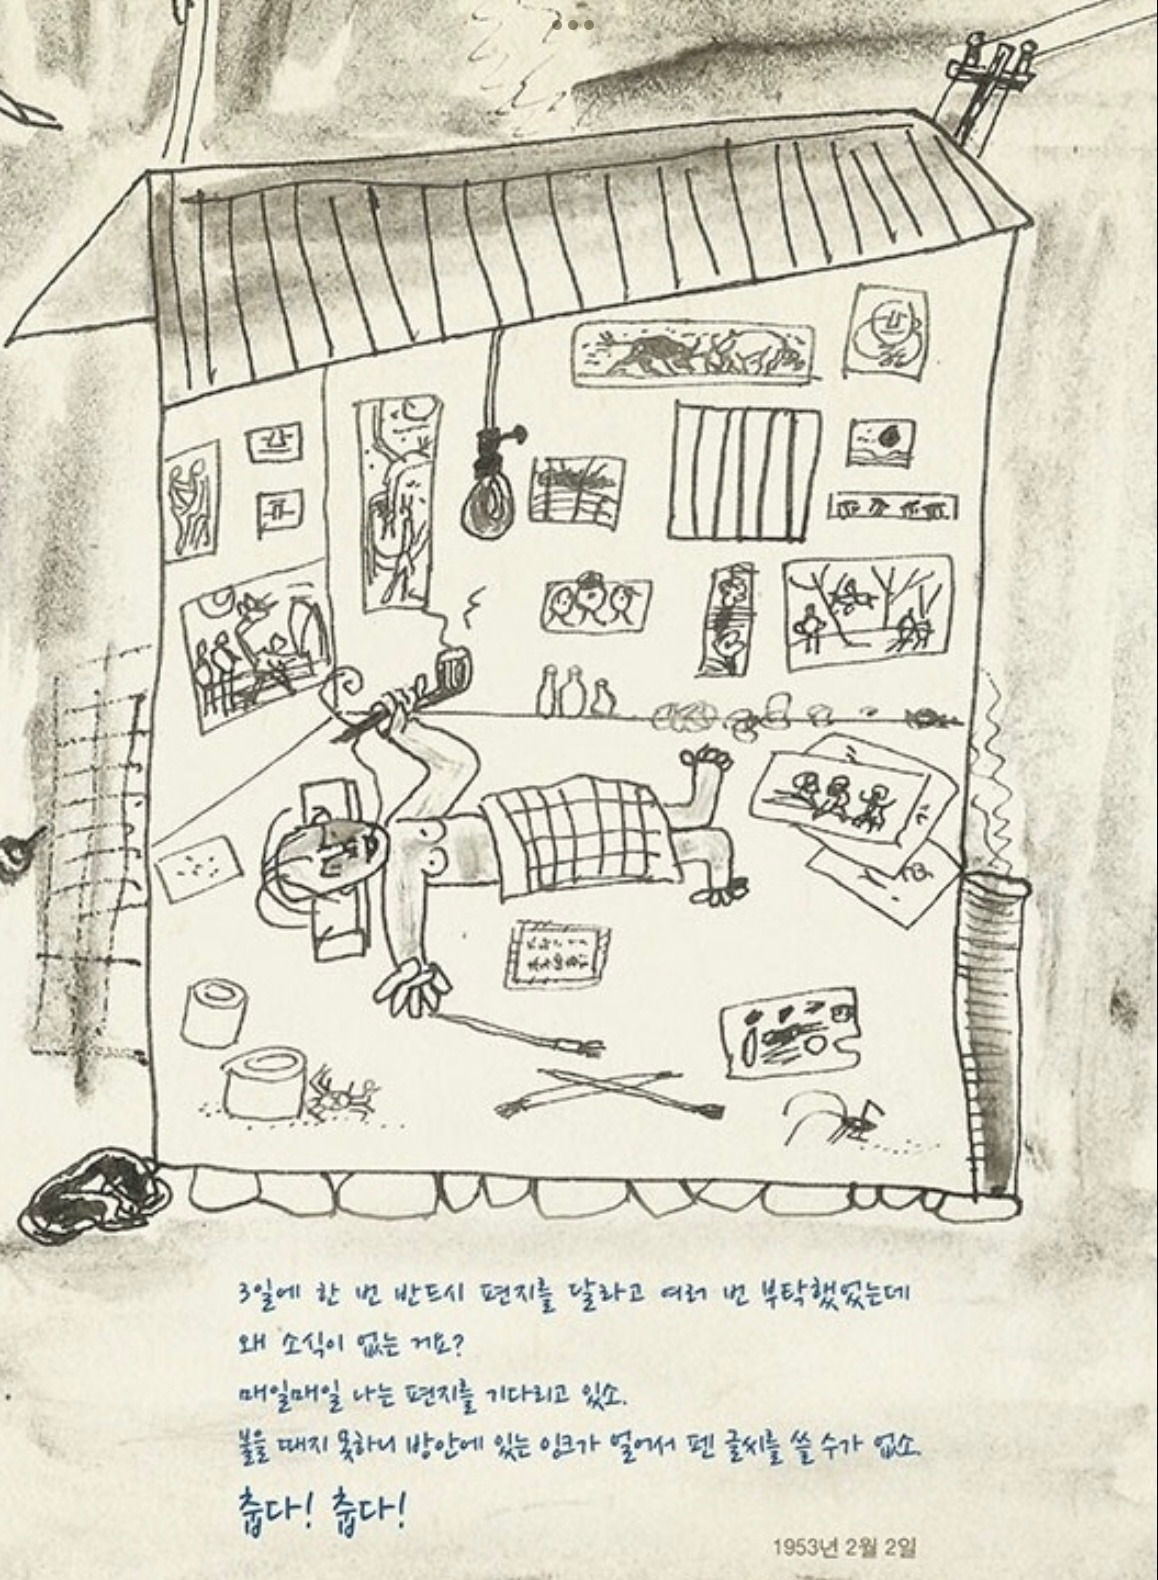 3일에 한 번 반드시 편지를 달라고 여러 번 부탁했었는데
왜 소식이 없는 거요?
매일매일 나는 편지를 기다리고 있소.
불을 때지 못하니 방안에 있는 잉크가 얼어서 펜 글씨를 쓸 수가 없소.
춥다! 춥다!
1953년 2월 2일